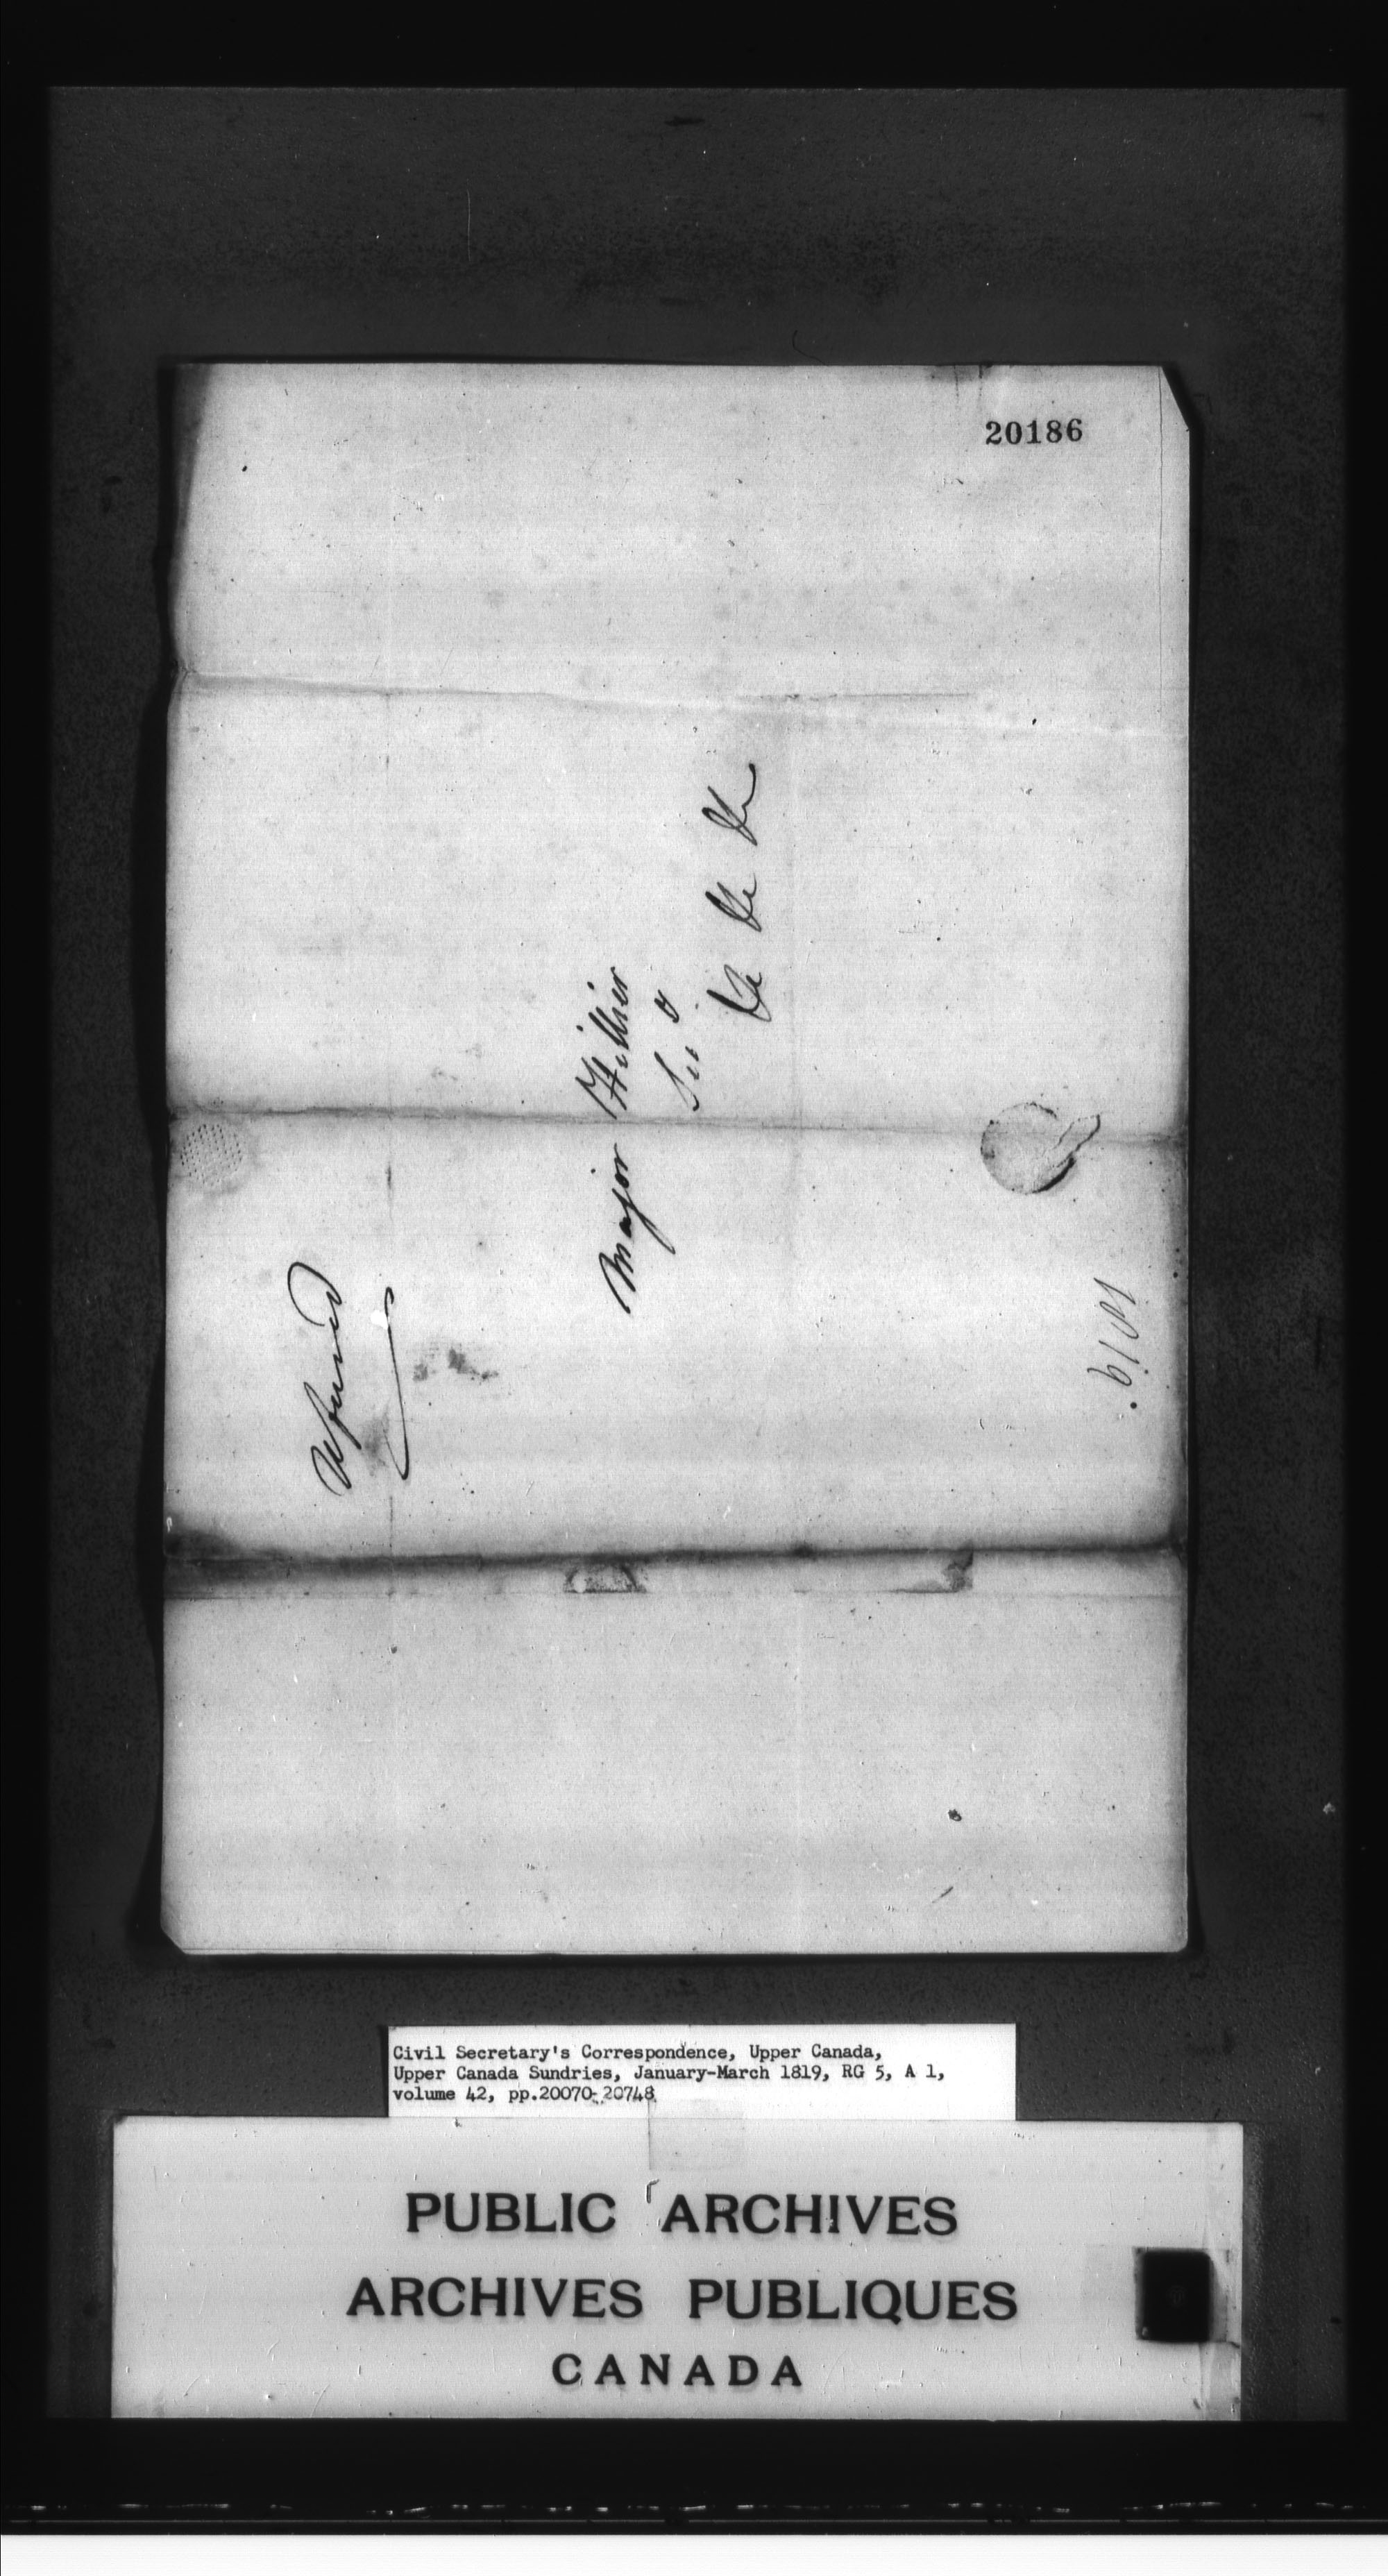 20186
Major Hillier
&c &c &c
1819.
Civil Secretary's Correspondence, Upper Canada,
Upper Canada Sundries, January-March 1819, RG 5, A 1,
volume 42, pp.20070-20748
PUBLIC ARCHIVES
ARCHIVES PUBLIQUES
CANADA